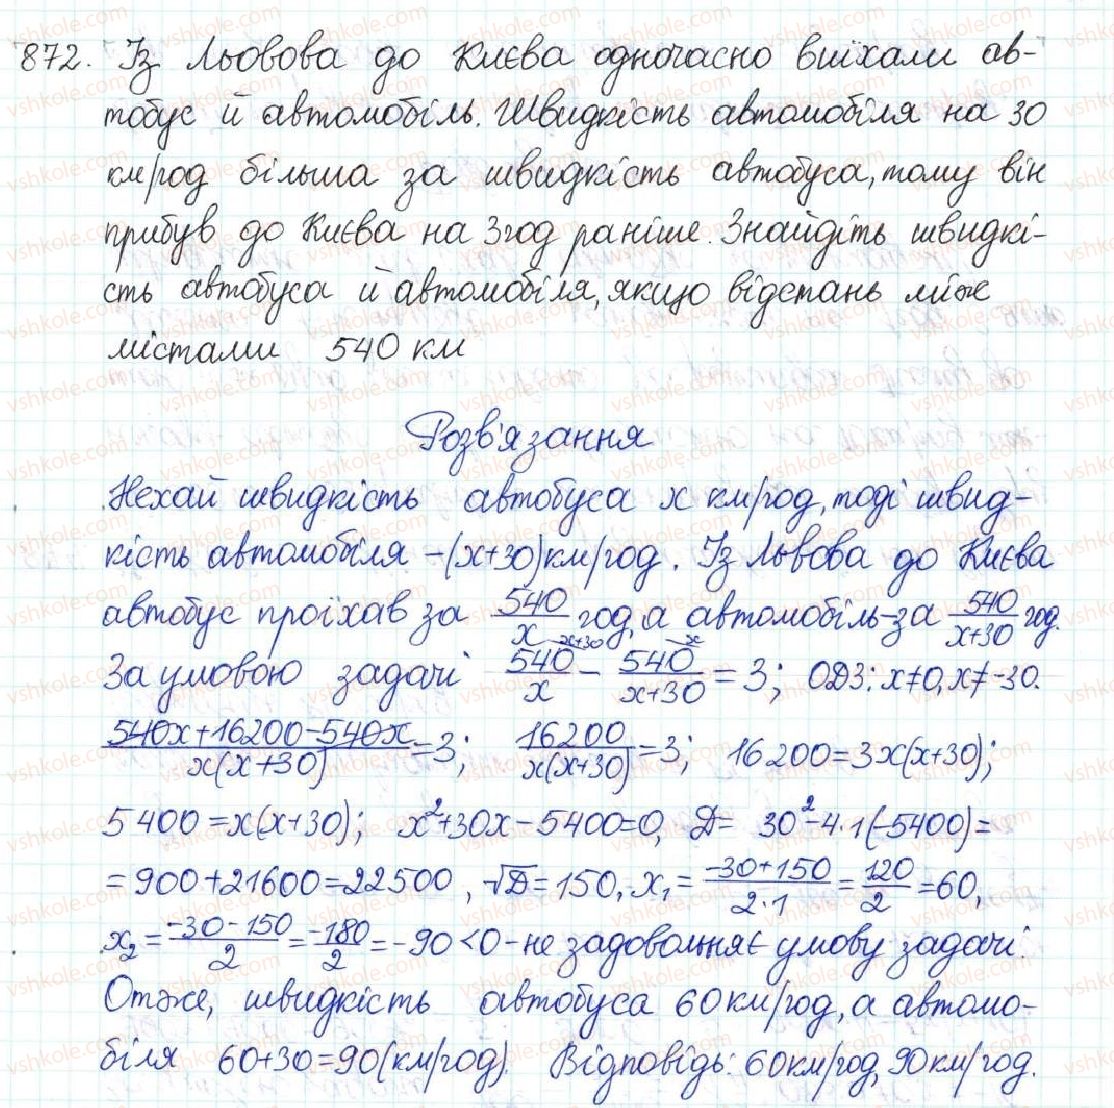 872. Із Львова до Києва одночасно виїхали ав-
тобус й автомобіль. Швидкість автомобіля на 30
км/год більша за швидкість автобуса, тому він
прибув до Києва на 3год раніше. Знайдіть швидкі-
сть автобуса й автомобіля, якщо відстань між
містами 540 км
Розв'язання
Нехай швидкість автобуса x км/год, тоді швид-
кість автомобіля –(x+30)км/год. Із Львова до Києва
автобус проїхав за 540/x год, а автомобіль–за 540/(x+30) год.
За умовою задачі 540/x – 540/(x+30) = 3; ОДЗ: x≠0, x≠-30.
(540x+16200–540x)/(x(x+30)) =3; 16200/(x(x+30)) =3; 16200=3x(x+30);
5400=x(x+30); x²+30x–5400=0, Д= 30²–4·1(–5400)=
=900+21600=22500, √Д=150, x₁ = (–30+150)/(2·1) = 120/2 =60,
x₂ = (–30–150)/2 = –180/2 = –90<0–не задовольняє умову задачі.
Отже, швидкість автобуса 60км/год, а автомо-
біля 60+30=90(км/год). Відповідь: 60км/год, 90км/год.